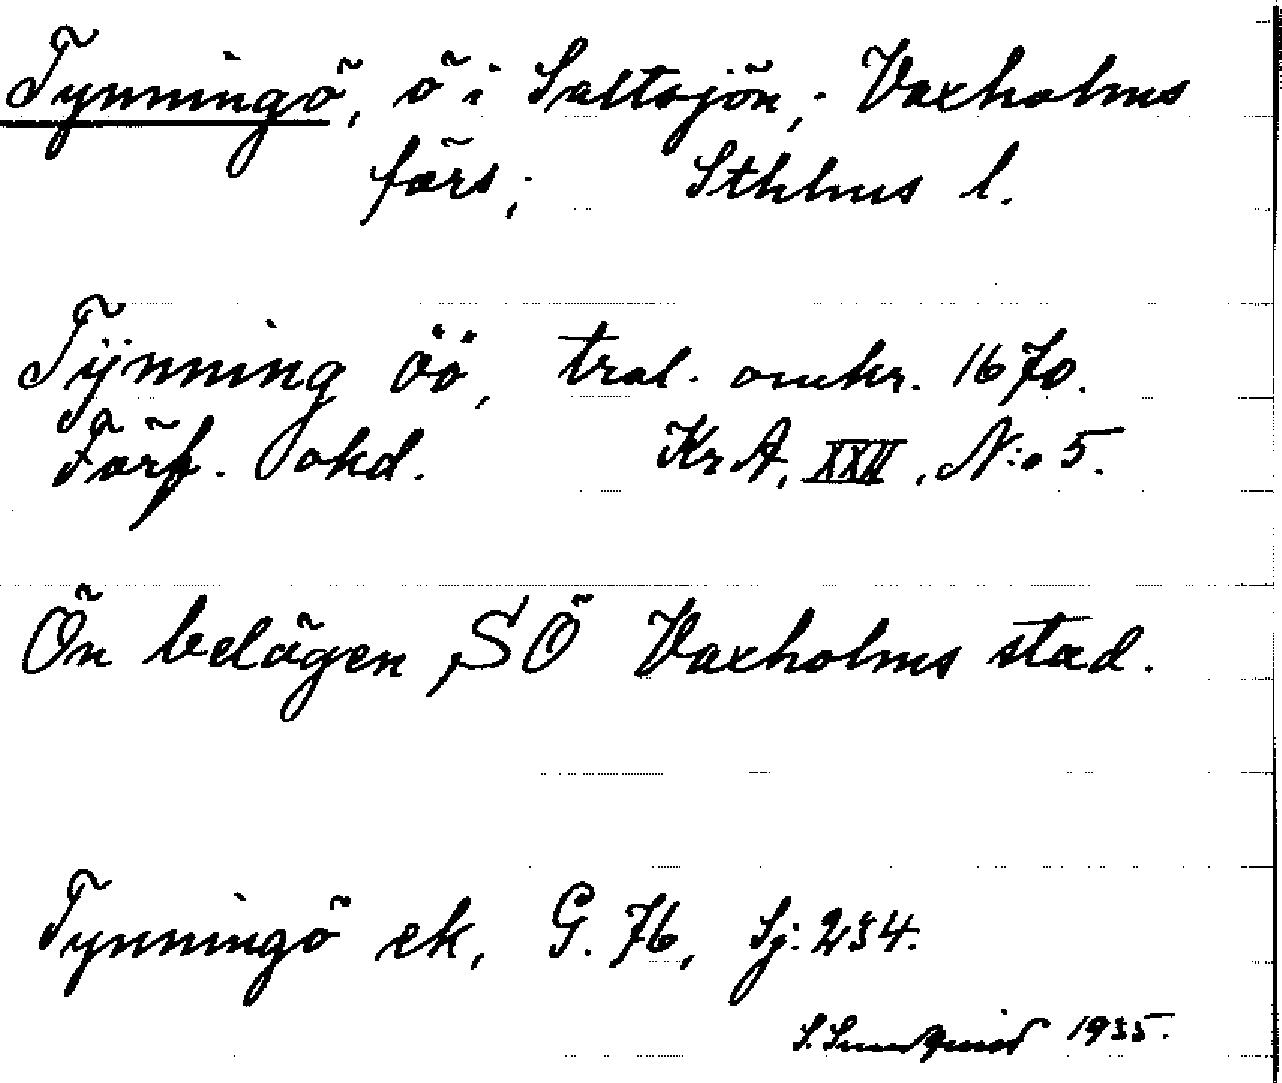 Tynningö, ö i Saltsjön; Vaxholms
förs; Sthlms l.
Tÿnning öö, trol. omkr. 1670.
Förf. okd. Kr A, XXVI, N:o 5.
Ön belägen SÖ Vaxholms stad.
Tynningö ek, G. 76, Sj: 234.
S. Sundqvist 1935.